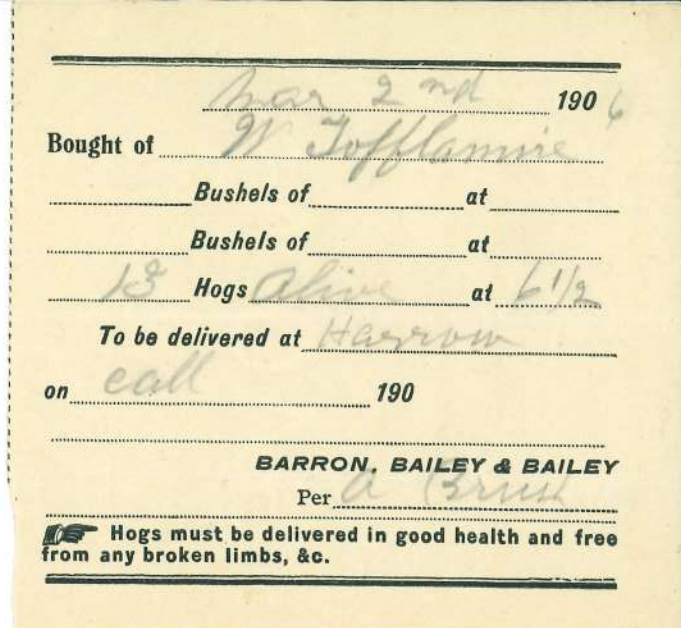 Mar 2nd 1906
Bought of W Tofflamire
Bushels of at
Bushels of at
13 Hogs Alive at 6 1/2
To be delivered at Harrow
on call 190
BARRON, BAILEY & BAILEY
Per A Brush
Hogs must be delivered in good health and free
from any broken limbs, &c.